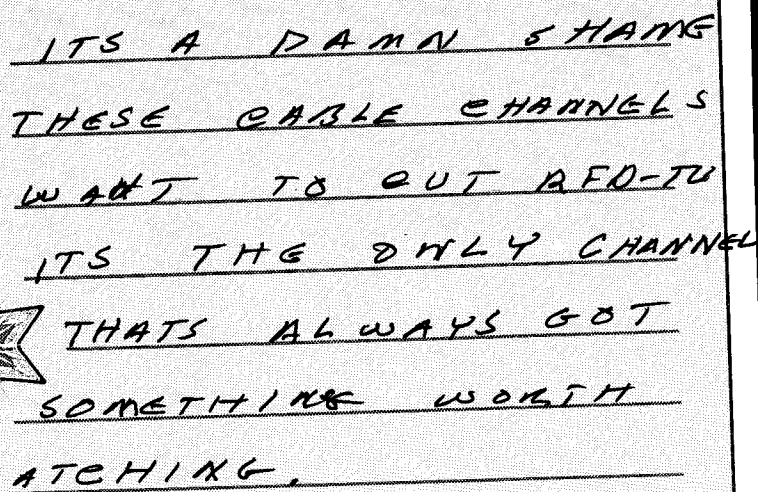 ITS A DAMN SHAME
THESE CABLE CHANNELS
WANT TO CUT RFD-TV
ITS THE ONLY CHANNEL
THATS ALWAYS GOT
SOMETHING WORTH
ATCHING.